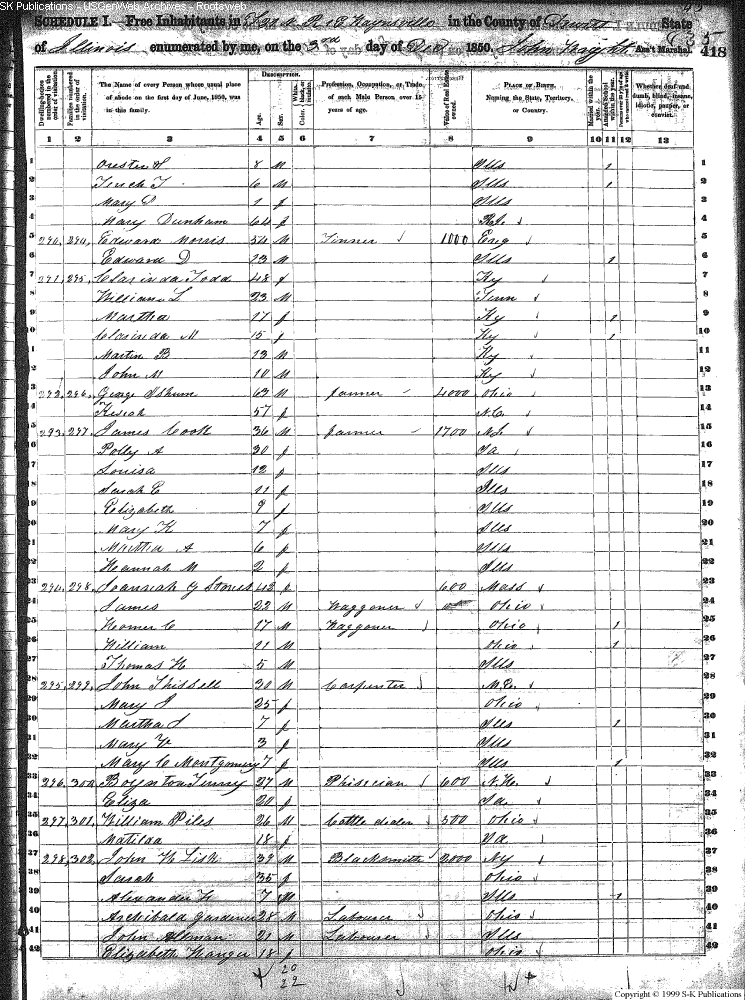 SK Publications - USGenWeb Archives - Rootsweb
SCHEDULE I.—Free Inhabitants in Waynesville in the County of Dewitt State
of Illinois enumerated by me, on the 3rd day of Dec 1850. John Haight Ass't Marshal. 418
Dwelling-houses numbered in the order of visitation.
Families numbered in the order of visitation.
The Name of every Person whose usual place of abode on the first day of June, 1850, was in this family.
Description.
Age.
Sex.
Color, White, black, or mulatto.
Profession, Occupation, or Trade of each Male Person over 15 years of age.
Value of Real Estate owned.
Place of Birth. Naming the State, Territory, or Country.
Married within the year.
Attended School within the year.
Whether deaf and dumb, blind, insane, idiotic, pauper, or convict.
1 2 3 4 5 6 7 8 9 10 11 12 13
1 8 M Ills 1 1
2 6 M Ills 1 2
3 Mary D 1 f Ills 3
4 Mary Dunham 64 f R.I. 4
5 290, 294, Edward Morris 54 M Tinner 1000 Eng 5
6 Edward D 13 M Ills 1 6
7 291, 295, Clarinda Todd 48 f Ky 7
8 William L 23 M Tenn 8
9 Martha 17 f Ky 1 9
10 Clarinda M 15 f Ky 1 10
11 Martin B 13 M Ky 11
12 John M 10 M Ky 12
13 292, 296, George Ishum 63 M farmer 4000 Ohio 13
14 Kesiah 57 f N.C. 14
15 293, 297, James Cook 36 M farmer 1700 N.J. 15
16 Polly A 30 f 16
17 Louisa 12 f Ills 17
18 Sarah E 11 f Ills 18
19 Elizabeth 9 f Ills 19
20 Mary K 7 f Ills 20
21 Martha A 6 f Ills 21
22 Hannah M 2 f Ills 22
23 294, 298, 42 f 600 Mass 23
24 James 22 M Waggoner Ohio 24
25 Homer C 17 M Waggoner Ohio 1 25
26 William 11 M Ohio 1 26
27 Thomas H 5 M Ills 27
28 295, 299, John Thissell 30 M Carpenter 28
29 Mary J 25 f Ohio 29
30 Martha J 7 f Ills 1 30
31 Mary V 3 f Ills 31
32 Mary C Montgomery 7 f Ills 1 32
33 296, 300, Boynton Tenny 27 M Phisician 600 N.H. 33
34 Eliza 20 f 34
35 297, 301, William Piles 26 M Cattle dealer 500 Ohio 35
36 Matilda 18 f Va 36
37 298, 302, John H Lish 39 M Blacksmith 2000 NY 37
38 Sarah 35 f Ohio 38
39 Alexander H 7 M Ills 1 39
40 Archibald Gardener 28 M Labourer Ohio 40
41 John 21 M Labourer Ills 41
42 Elizabeth 18 f Ohio 42
20
22
Copyright © 1999 S-K Publications